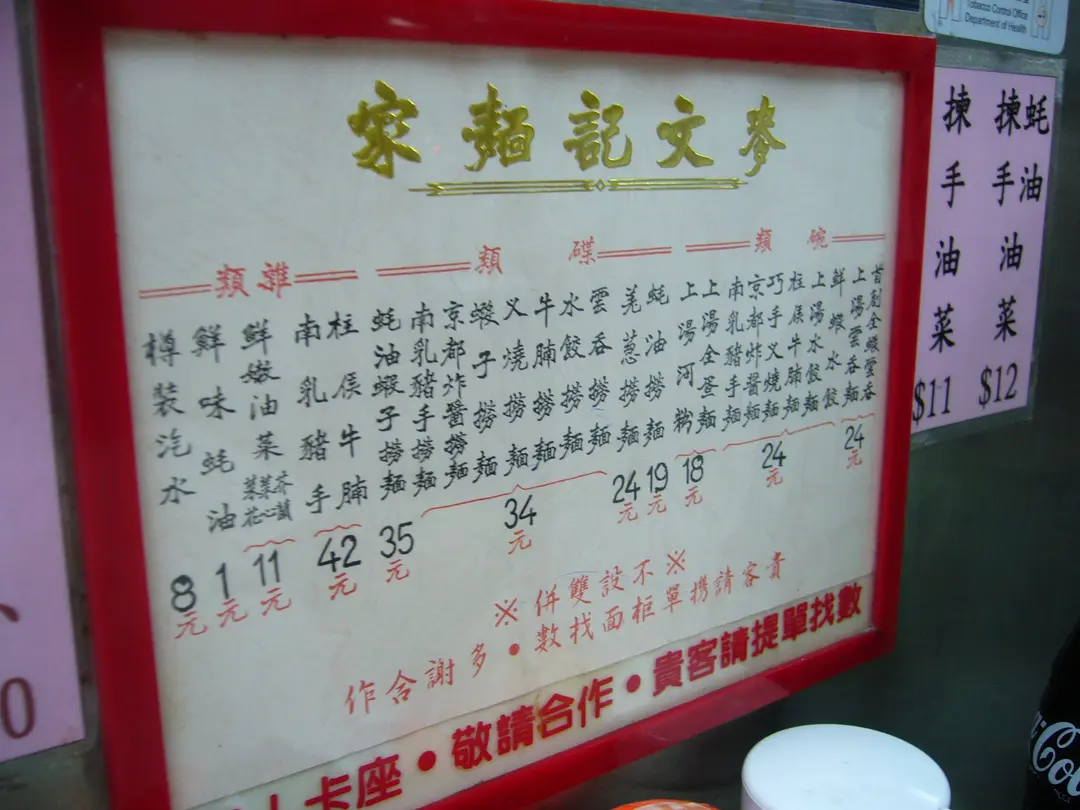 麥文記麵家
碗類
首創全蝦雲吞
上湯雲吞麵
24元
鮮蝦水餃
上湯水餃麵
柱侯牛腩麵
巧手叉燒麵
京都炸醬麵
南乳豬手麵
24元
上湯全蛋麵
上湯河粉
18元
碟類
蚝油撈麵
19元
羌蔥撈麵
24元
雲吞撈麵
水餃撈麵
牛腩撈麵
叉燒撈麵
蝦子撈麵
京都炸醬撈麵
南乳豬手撈麵
34元
蚝油蝦子撈麵
35元
雜類
柱侯牛腩
南乳豬手
42元
鮮嫩油菜
芥蘭
菜心
菜花
11元
鮮味蚝油
1元
樽裝汽水
8元
※不設雙併※
貴客請携單柜面找數•多謝合作
卡座•敬請合作•貴客請提單找數
蚝油
揀手油菜
$12
揀手油菜
$11
Tobacco Control Office
Department of Health
0